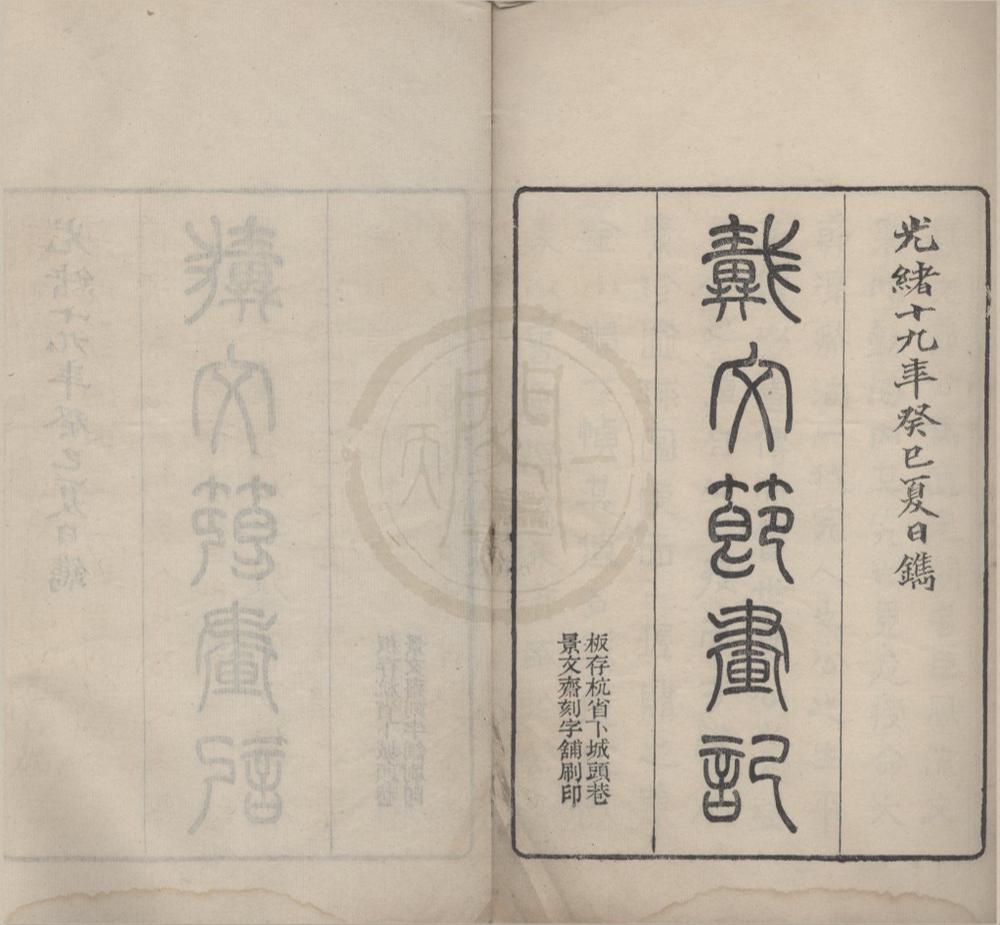 光緒十九年癸巳夏日鐫
戴文節畫記
板存杭省下城頭巷
景文齋刻字舖刷印